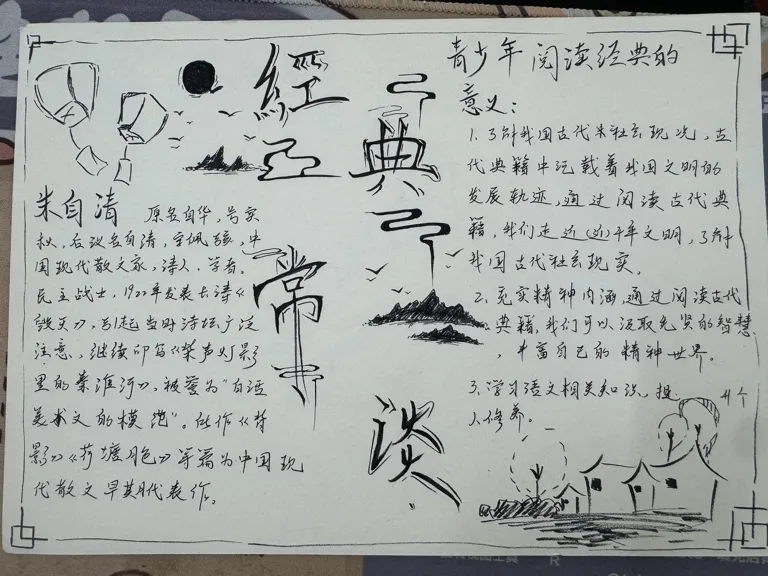 經典常談
朱自清 原名自华，号实
秋，后改名自清，字佩弦，中
国现代散文家，诗人，学者，
民主战士，1922年发表长诗《
毁灭》，引起当时诗坛广泛
注意，继续印写《桨声灯影
里的秦淮河》，被誉为“白话
美术文的模范”。他作《背
影》《荷塘月色》等篇为中国现
代散文早期代表作。
青少年阅读经典的
意义：
1.了解我国古代来社会现况，古
代典籍中记载着我国文明的
发展轨迹，通过阅读古代典
籍，我们走近（近）千年文明，了解
我国古代社会现实。
2.充实精神内涵，通过阅读古代
典籍，我们可以汲取先贤的智慧
，丰富自己的精神世界。
3.学习语文相关知识，提升个
人修养。